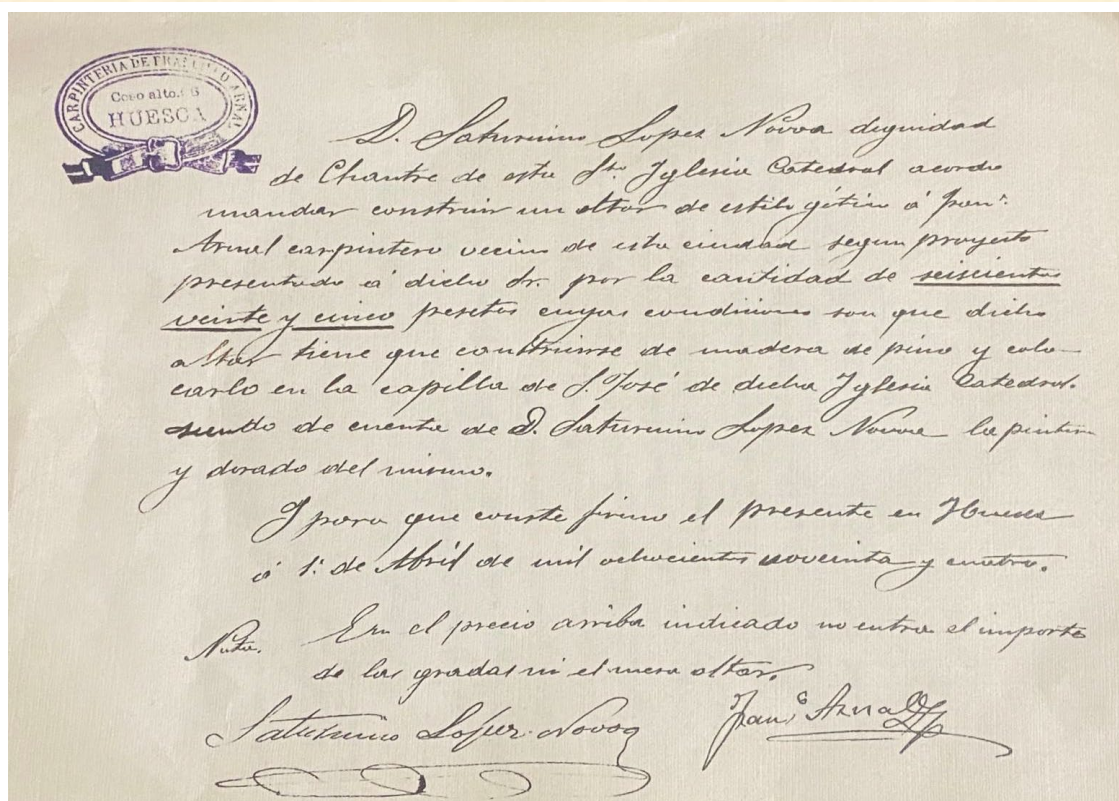 CARPINTERIA DE FRANCISCO ARNAL
Coso alto.
HUESCA
D. Saturnino Lopez Novoa dignidad
de Chantre de esta Sta. Yglesia Catedral acordo
mandar construir un altar de estilo gótico á Franco.
Arnal carpintero vecino de esta ciudad segun proyecto
presentado á dicho Sr. por la cantidad de seiscientas
veinte y cinco pesetas cuyas condiciones son que dicho
altar tiene que construirse de madera de pino y colo-
carlo en la capilla de S. José de dicha Yglesia Catedral.
siendo de cuenta de D. Saturnino Lopez Novoa la pintura
y dorado del mismo.
Y para que conste firmo el presente en Huesca
á 1º de Abril de mil ochocientos noveinta y cuatro.
Nota. En el precio arriba indicado no entra el importe
de las gradas ni el mesa altar.
Saturnino Lopez Novoa
Franco Arnal